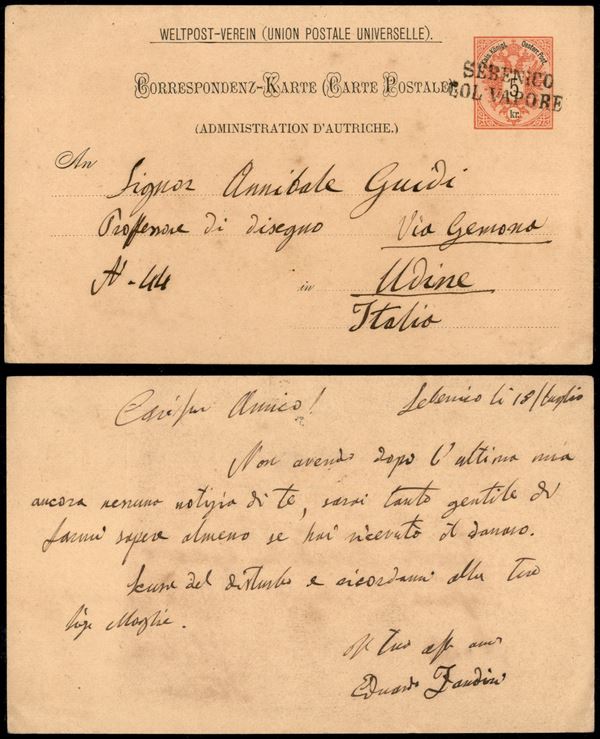 WELTPOST-VEREIN (UNION POSTALE UNIVERSELLE).
CORRESPONDENZ-KARTE (CARTE POSTALE
(ADMINISTRATION D'AUTRICHE.)
5
kr.
SEBENICO
COL VAPORE
An Signor Annibale Guidi
Proffessore di disegno Via Gemona
N° 44 in Udine
Italia
Amico! Sebenico li 18/luglio
Non avendo dopo l'ultima mia
ancora nessuna notizia di te, sarai tanto gentile di
farmi sapere almeno se hai ricevuto il danaro.
Scusa del disturbo e ricordami alla tua
Sigr Moglie.
Il tuo aff amo
Eduardo